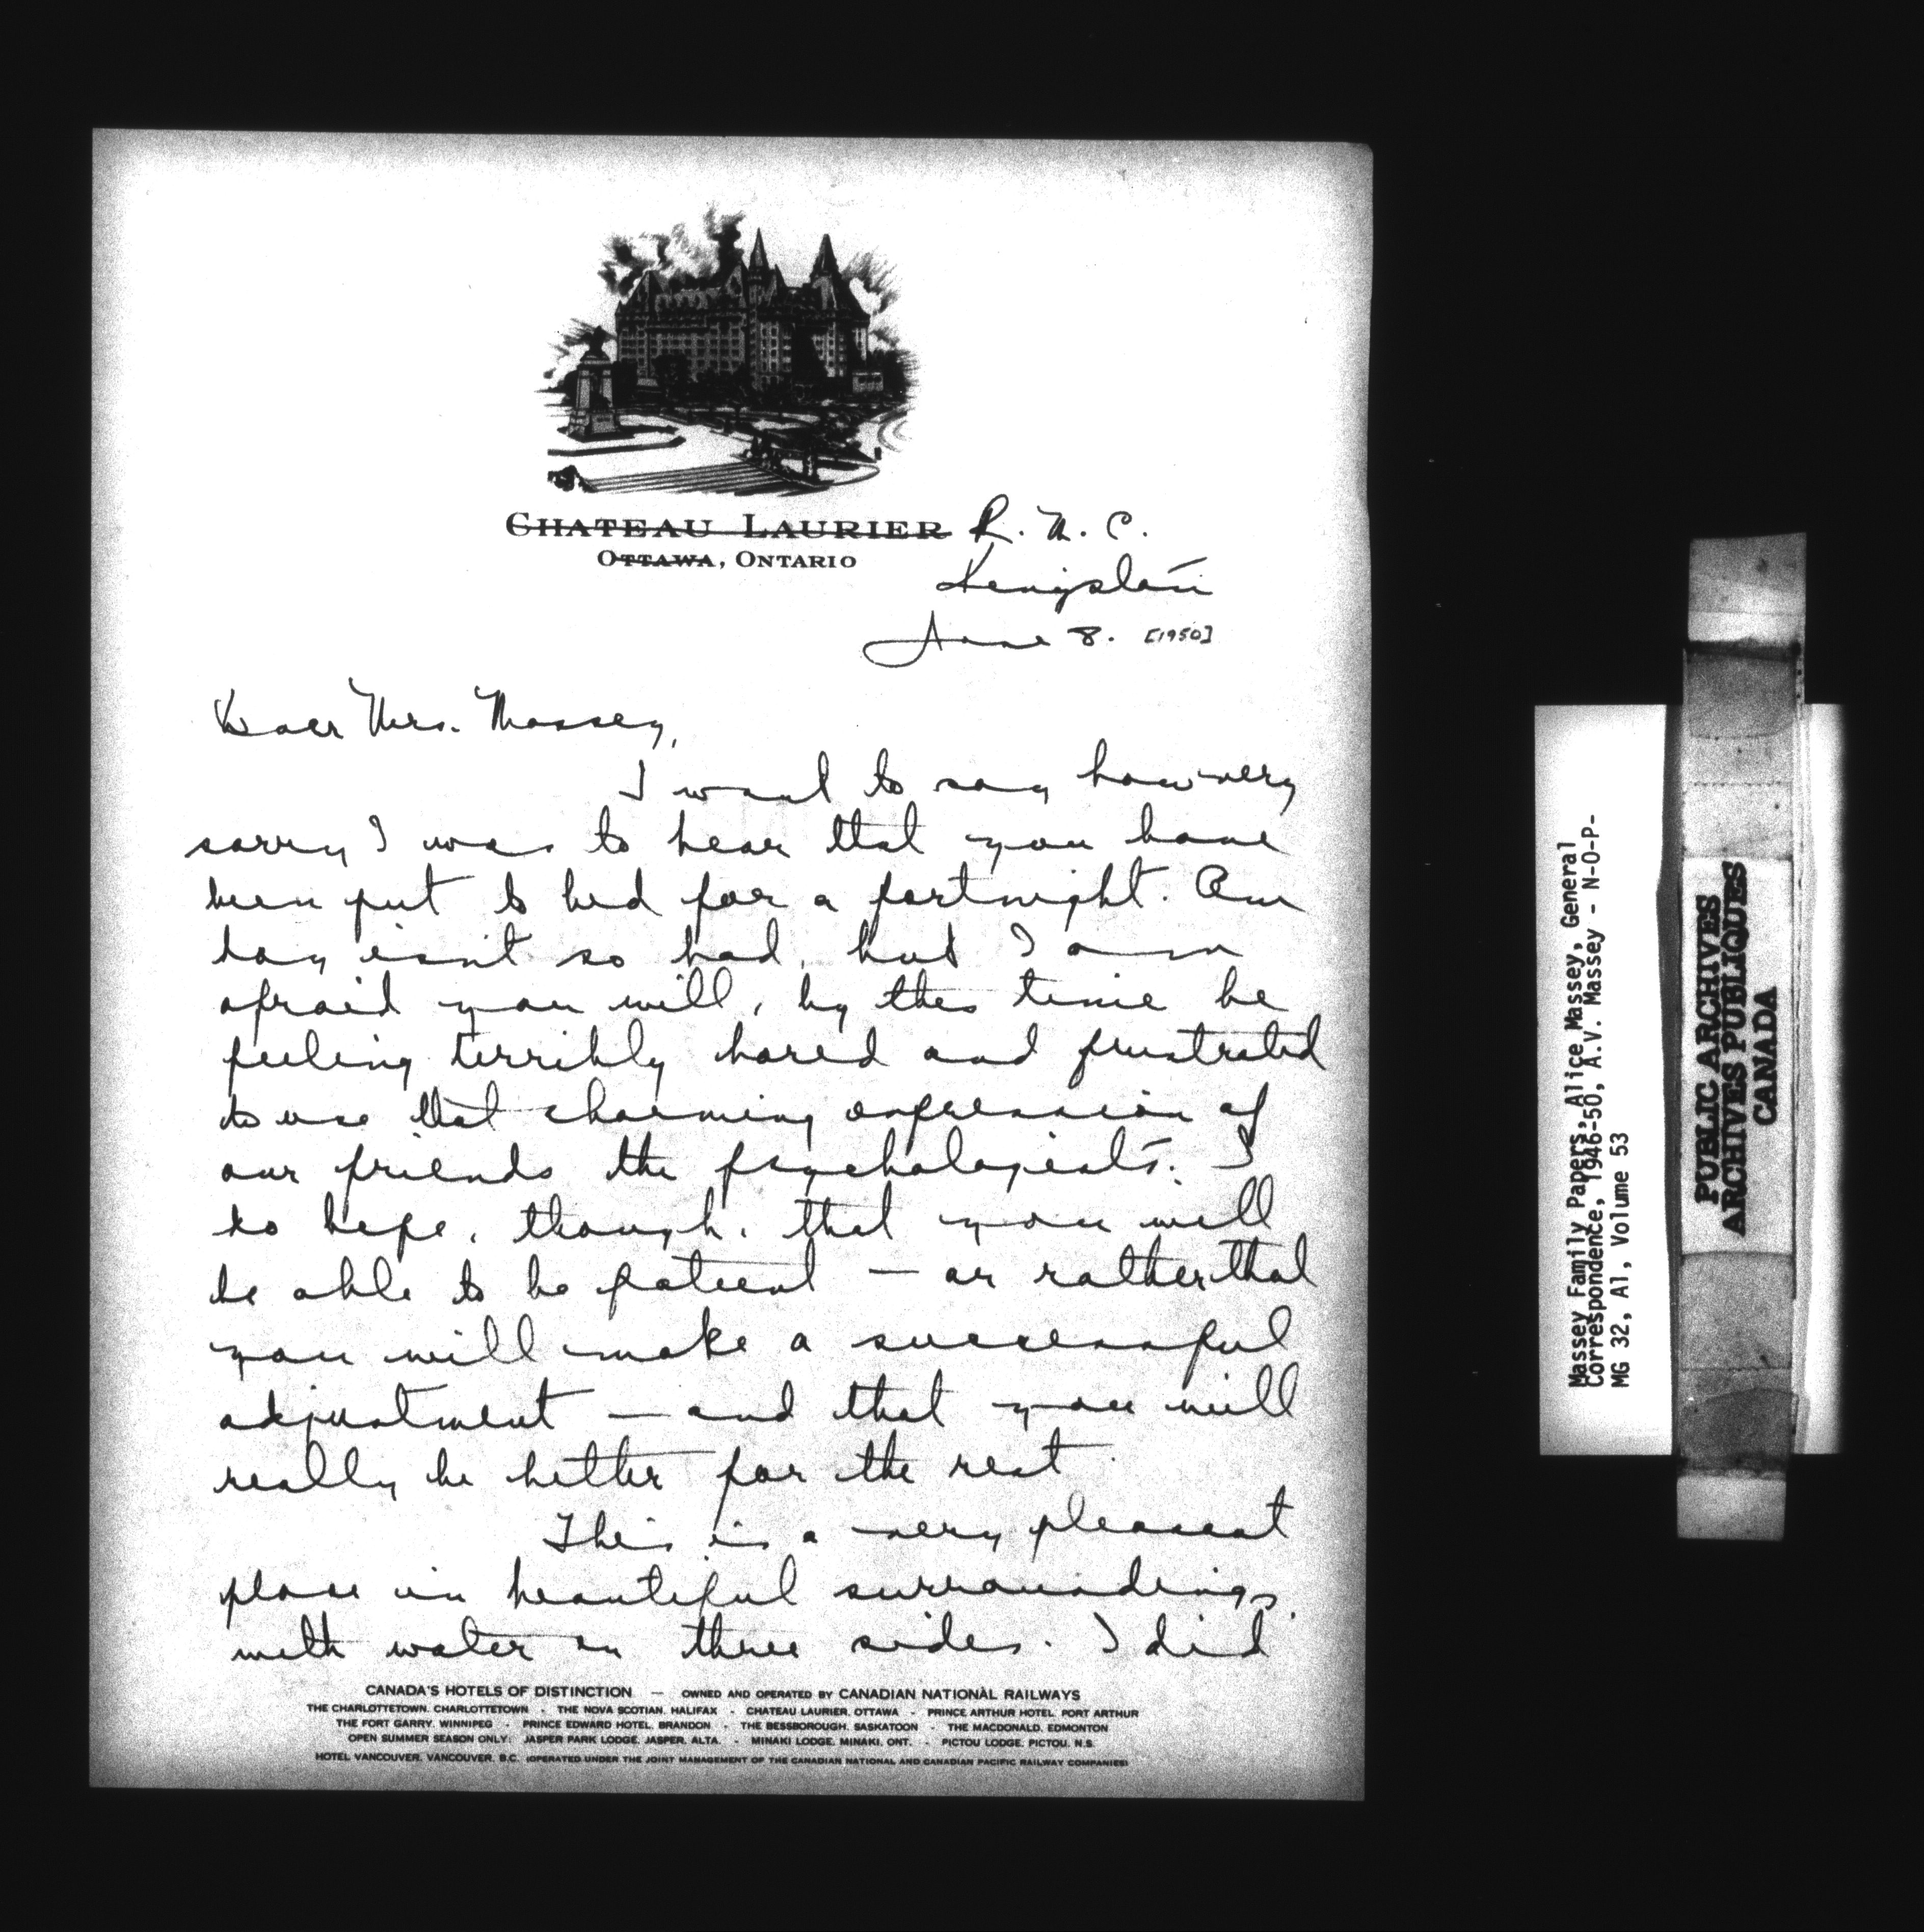 CHATEAU LAURIER R. M. C.
OTTAWA, ONTARIO
Kingston
June 8. [1950]
Dear Mrs. Massey,
I want to say how very
sorry I was to hear that you have
been put to bed for a fortnight. One
day isn't so bad, but I am
afraid you will, by this time be
feeling terribly bored and frustrated
to use that charming expression of
our friends the psychologists. I
do hope, though, that you will
be able to be patient — or rather that
you will make a successful
adjustment — and that you will
really be better for the rest.
This is a very pleasant
place in beautiful surroundings,
with water on three sides. I did
CANADA'S HOTELS OF DISTINCTION — OWNED AND OPERATED BY CANADIAN NATIONAL RAILWAYS
THE CHARLOTTETOWN, CHARLOTTETOWN - THE NOVA SCOTIAN, HALIFAX - CHATEAU LAURIER, OTTAWA - PRINCE ARTHUR HOTEL, PORT ARTHUR
THE FORT GARRY, WINNIPEG - PRINCE EDWARD HOTEL, BRANDON - THE BESSBOROUGH, SASKATOON - THE MACDONALD, EDMONTON
OPEN SUMMER SEASON ONLY: JASPER PARK LODGE, JASPER, ALTA. - MINAKI LODGE, MINAKI, ONT. - PICTOU LODGE, PICTOU, N.S.
HOTEL VANCOUVER, VANCOUVER, B.C. (OPERATED UNDER THE JOINT MANAGEMENT OF THE CANADIAN NATIONAL AND CANADIAN PACIFIC RAILWAY COMPANIES)
Massey Family Papers, Alice Massey, General
Correspondence, 1946-50, A.V. Massey - N-O-P-
MG 32, A1, Volume 53
PUBLIC ARCHIVES
ARCHIVES PUBLIQUES
CANADA